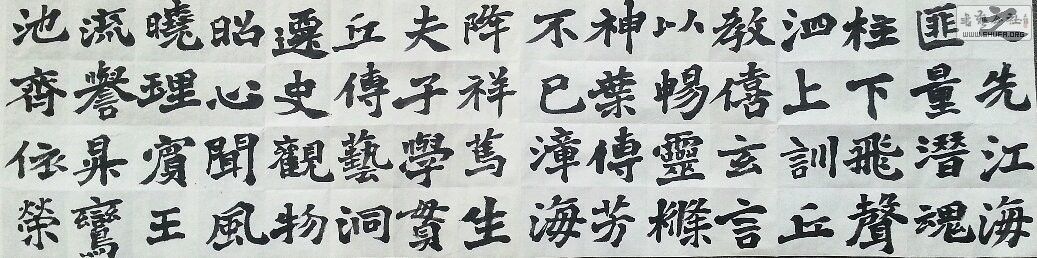 先江海
匪量潛魂
柱下飛聲
泗上訓丘
教僖玄言
以暢靈
神葉傳芳
不已漳海
降祥篤生
夫子學貫
丘傳藝洞
遷史觀物
昭心聞風
曉理賓王
流譽昇鸞
池齊依榮
WWW.SHUFA.ORG